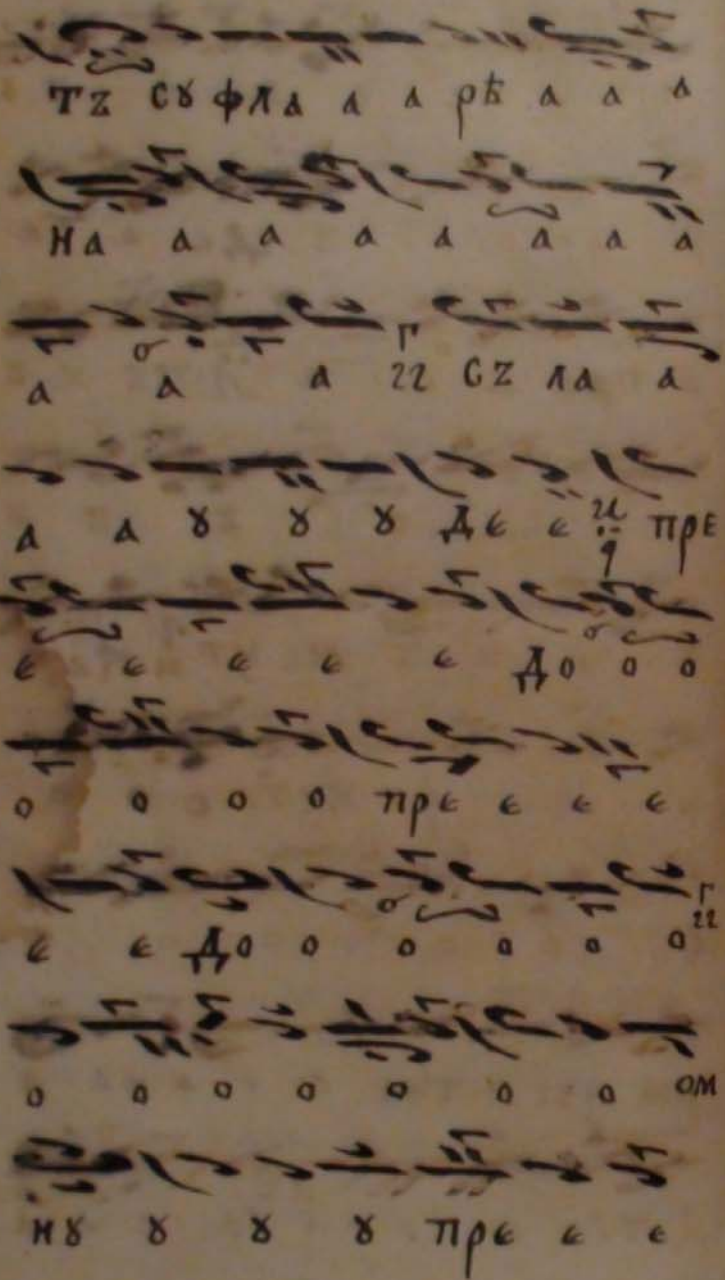 тz сȣ фла а а рѣ а а а
на а а а а а а а
а а а сz ла а
а а ȣ ȣ ȣ де е пре
е е е е е до о о
о о о о пре е е е
е е до о о о о о
о о о о о о о ом
нȣ ȣ ȣ ȣ пре е е